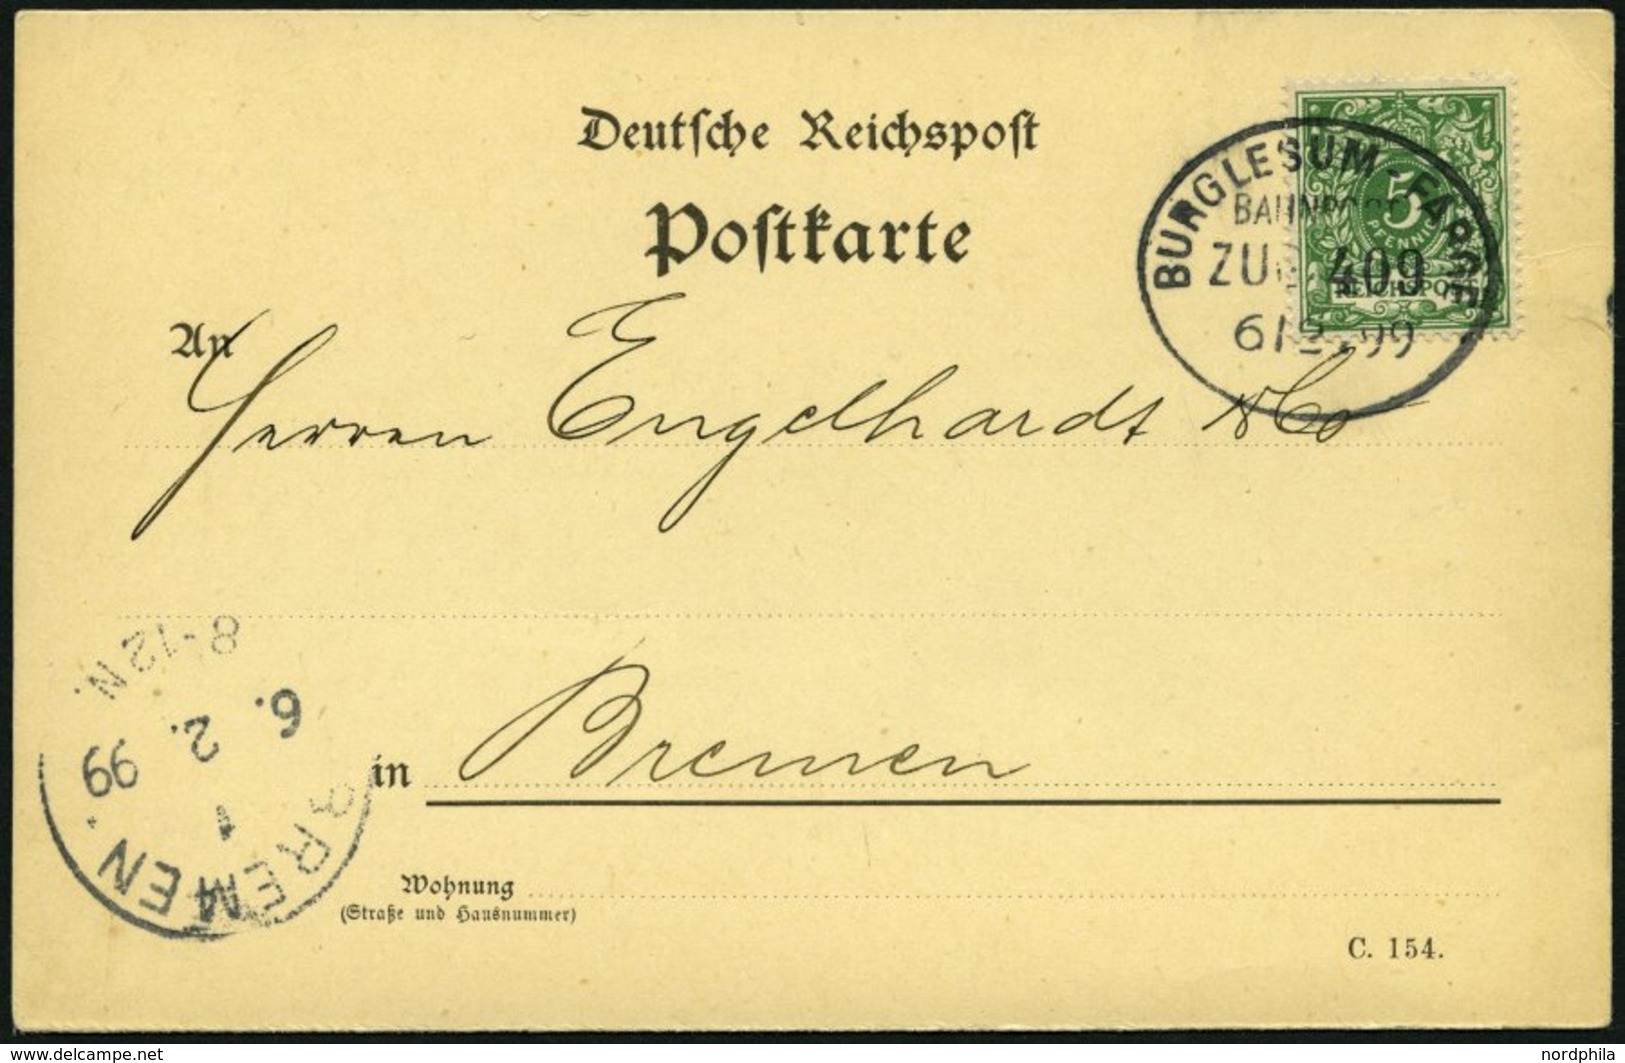 Deutsche Reichspost
Postkarte
BURGLESUM-FARGE
BAHNPOST
ZUG 409
6/2 99
5
PFENNIG
REICHSPOST
An
Herren Engelhardt & Co
8-12N.
6. 2. 99
1
BREMEN.
in Bremen
Wohnung
(Straße und Hausnummer)
C. 154.
www.delcampe.net
nordphila